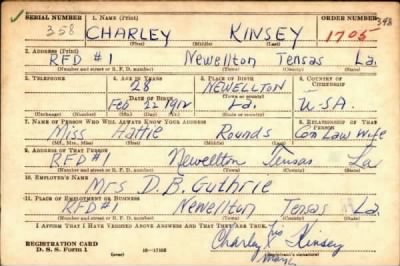 SERIAL NUMBER 1. NAME (Print) ORDER NUMBER
358 CHARLEY KINSEY 1705 343
(First) (Middle) (Last)
2. ADDRESS (Print)
RFD #1 Newellton Tensas La.
3. TELEPHONE 4. AGE IN YEARS 5. PLACE OF BIRTH 6. COUNTRY OF CITIZENSHIP
28 NEWELLTON
DATE OF BIRTH (Town or county)
Feb 22 1912 La. U-S-A.
(Mo.) (Day) (Yr.) (State or country)
7. NAME OF PERSON WHO WILL ALWAYS KNOW YOUR ADDRESS 8. RELATIONSHIP OF THAT PERSON
Miss Hattie Rounds Com Law Wife
(Mr., Mrs., Miss) (First) (Middle) (Last)
9. ADDRESS OF THAT PERSON
RFD #1 Newellton Tensas La
10. EMPLOYER'S NAME
Mrs D. B. Guthrie
11. PLACE OF EMPLOYMENT OR BUSINESS
RFD #1 Newellton Tensas La.
I AFFIRM THAT I HAVE VERIFIED ABOVE ANSWERS AND THAT THEY ARE TRUE.
REGISTRATION CARD
D. S. S. Form 1
Charley X Kinsey
his
Mark